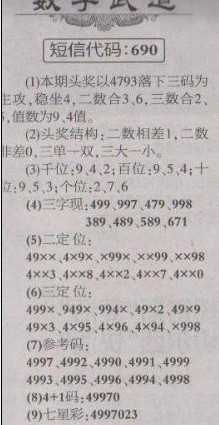 短信代码:690
(1)本期头奖以4793落下三码为
主攻,稳坐4,二数合3、6,三数合2、
5,值数为9、4值。
(2)头奖结构:二数相差1,二数
非差0,三单一双,三大一小。
(3)千位:9、4、2;百位:9、5、4;十
位:9、5、3;个位:2、7、6
(4)三字现:499、997、479、998
389、489、589、671
(5)二定位:
49××、4×9×、×99×、××99、××98
4××3、4××8、4××2、4××7、4××0
(6)三定位:
499×、949×、994×、49×2、49×9
49×3、4×95、4×96、4×94、×998
(7)参考码:
4997、4992、4990、4991、4999
4993、4995、4996、4994、4998
(8)4+1码:49970
(9)七星彩:4997023